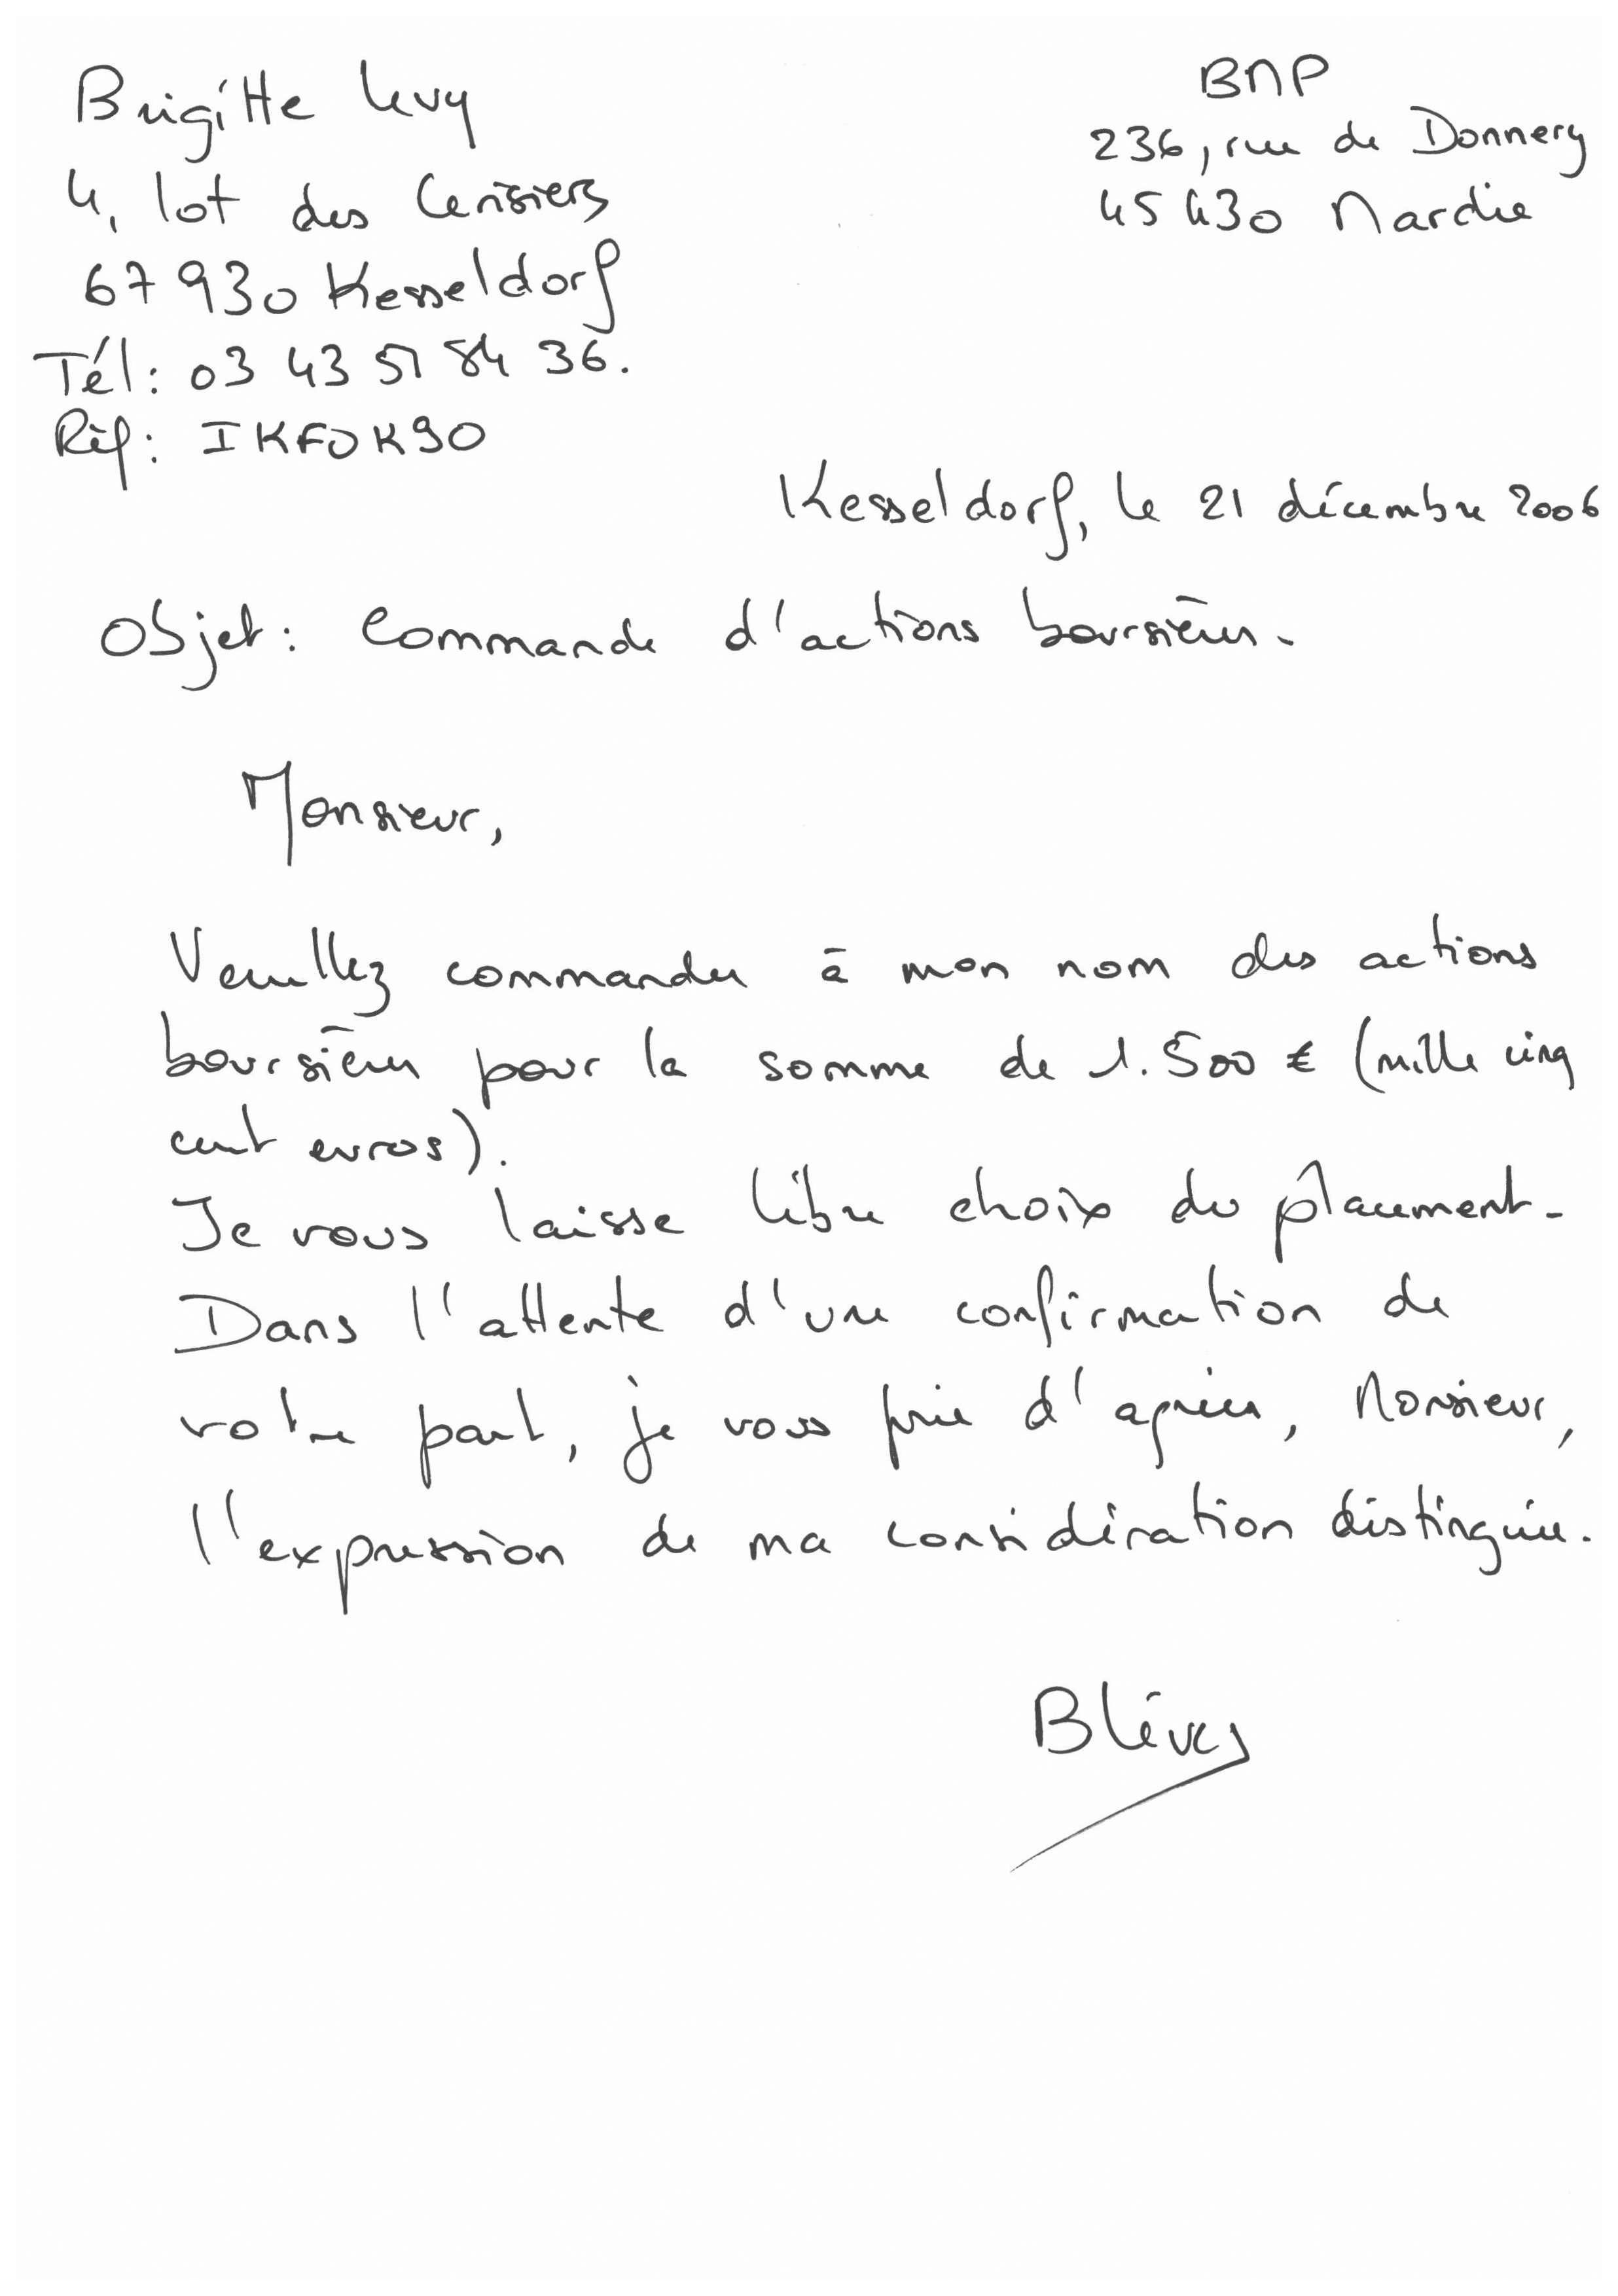 Brigitte Levy
4, lot des Cerisiers
67930 Kesseldorf
Tél: 03 43 51 84 36.
Réf: IKFOK90
BNP
236, rue de Donnery
45430 Mardie
Kesseldorf, le 21 décembre 2006
Objet: Commande d'actions boursières.
Monsieur,
Veuillez commander à mon nom des actions
boursières pour la somme de 1.500 € (mille cinq
cent euros).
Je vous laisse libre choix du placement.
Dans l'attente d'une confirmation de
votre part, je vous prie d'agréer, Monsieur,
l'expression de ma considération distinguée.
BLévy